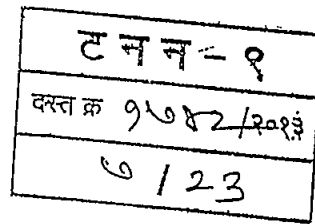 ट न न - १
दस्त क्र १७४२/२०१३
७ / 23